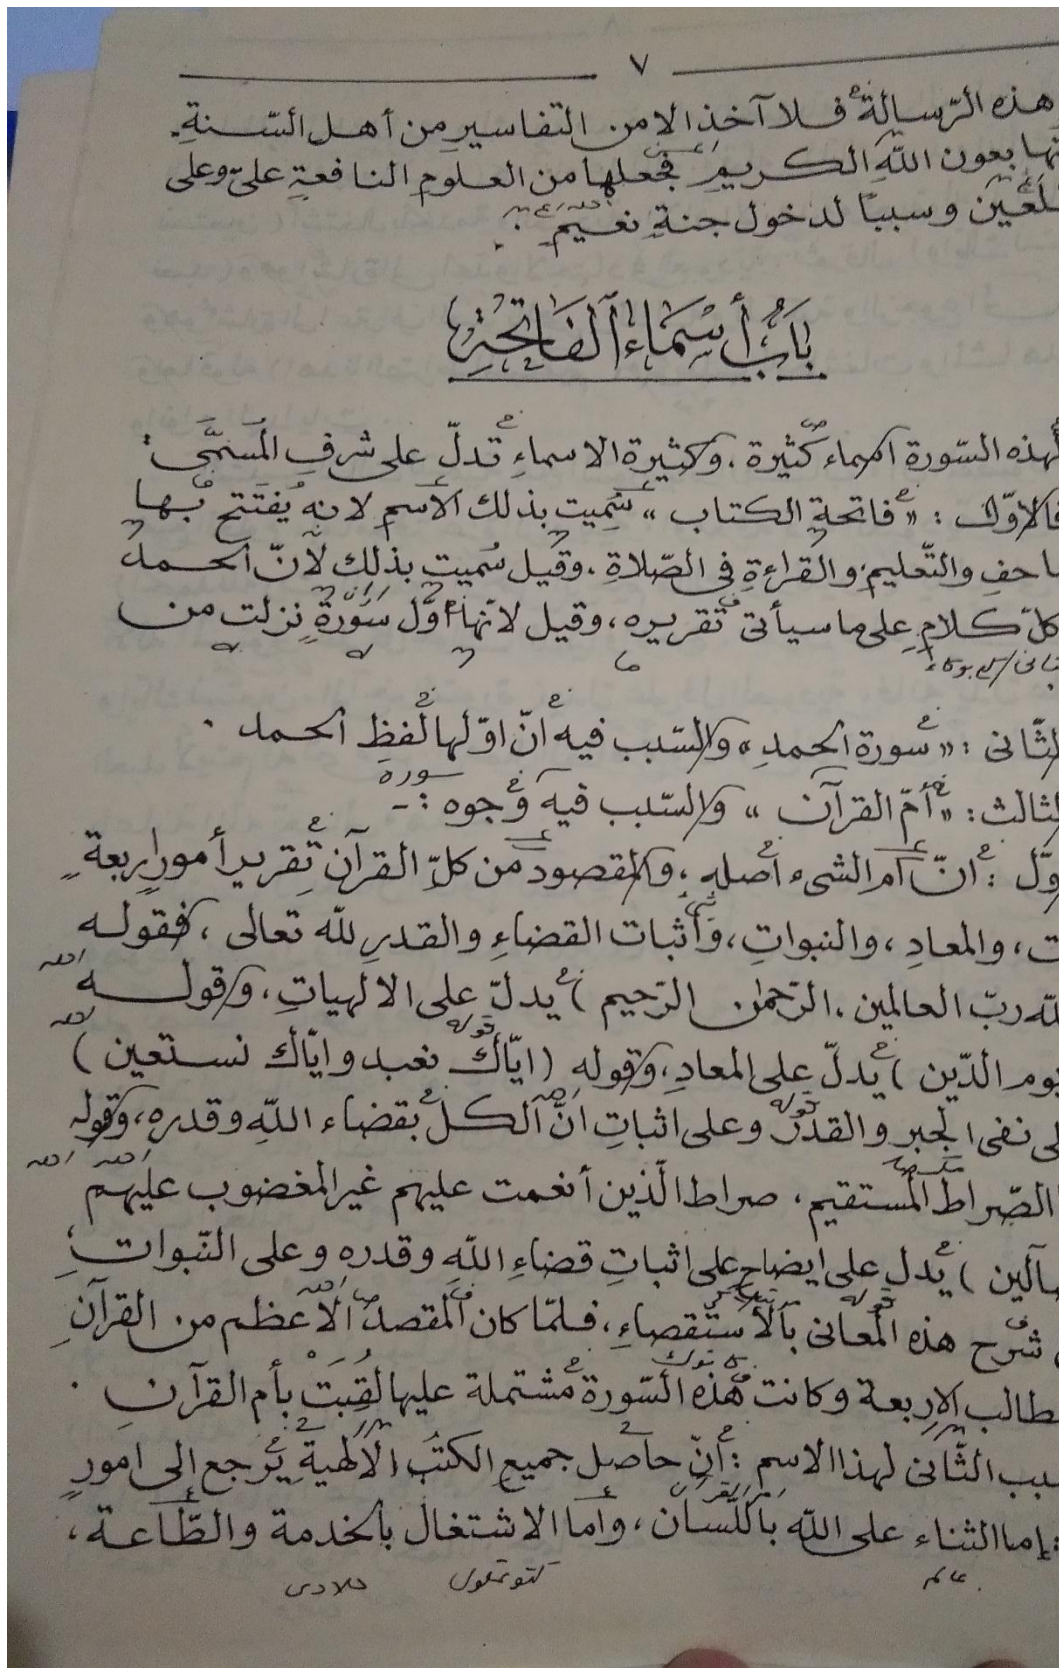 ٧
هذه الرّسالة فلا آخذ الا من التفاسير من أهل السّنة.
بعون الله الكريم فجعلها من العلوم النافعة عليّ وعلى
وسببا لدخول جنة نعيم.
بَابُ أَسْمَاءِ ٱلفَاتِحَةِ
لهذه السّورة اسماء كثيرة، وكثيرة الاسماء تدلّ على شرف المسمَّى؛
فالاوّل : «فاتحة الكتاب» سُمِيت بذلك الاسم لانه يُفتتح بها
احف والتّعليم والقراءة في الصّلاة، وقيل سُميت بذلك لأنّ الحمد
كلّ كلام على ما سيأتى تقريره، وقيل لانّها أوّل سورة نزلت من
الثّانى : «سورة الحمد» والسّبب فيه أنّ اوّلها لفظ الحمد .
لثالث : «أمّ القرآن» والسّبب فيه وجوه : -
سورة
وّل : أنّ أم الشىء أصله، والمقصود من كلّ القرآن تقرير أمور اربعة
ت، والمعاد، والنبوات، واثبات القضاء والقدر لله تعالى، فقوله
لله ربّ العالمين، الرّحمن الرّحيم) يدلّ على الالهيات، وقوله
الله
يوم الدّين) يدلّ على المعاد، وقوله (ايّاك نعبد وايّاك نستعين)
قوله
لى نفى الجبر والقدر وعلى اثبات انّ الكلّ بقضاء الله وقدره، وقوله
الصّراط المستقيم، صراط الّذين أنعمت عليهم غير المغضوب عليهم
ضآلين) يدل على ايضاح على اثبات قضاء الله وقدره وعلى النّبوات؛
شرح هذه المعانى بالاستقصاء، فلمّا كان المقصد الأعظم من القرآن
طالب الاربعة وكانت هذه السّورة مشتملة عليها لُقِبَتْ بأم القرآن .
سبب الثّانى لهذا الاسم : أنّ حاصل جميع الكتب الالهية يرجع الى امور
: إما الثناء على الله باللّسان، وأما الاشتغال بالخدمة والطّاعة،